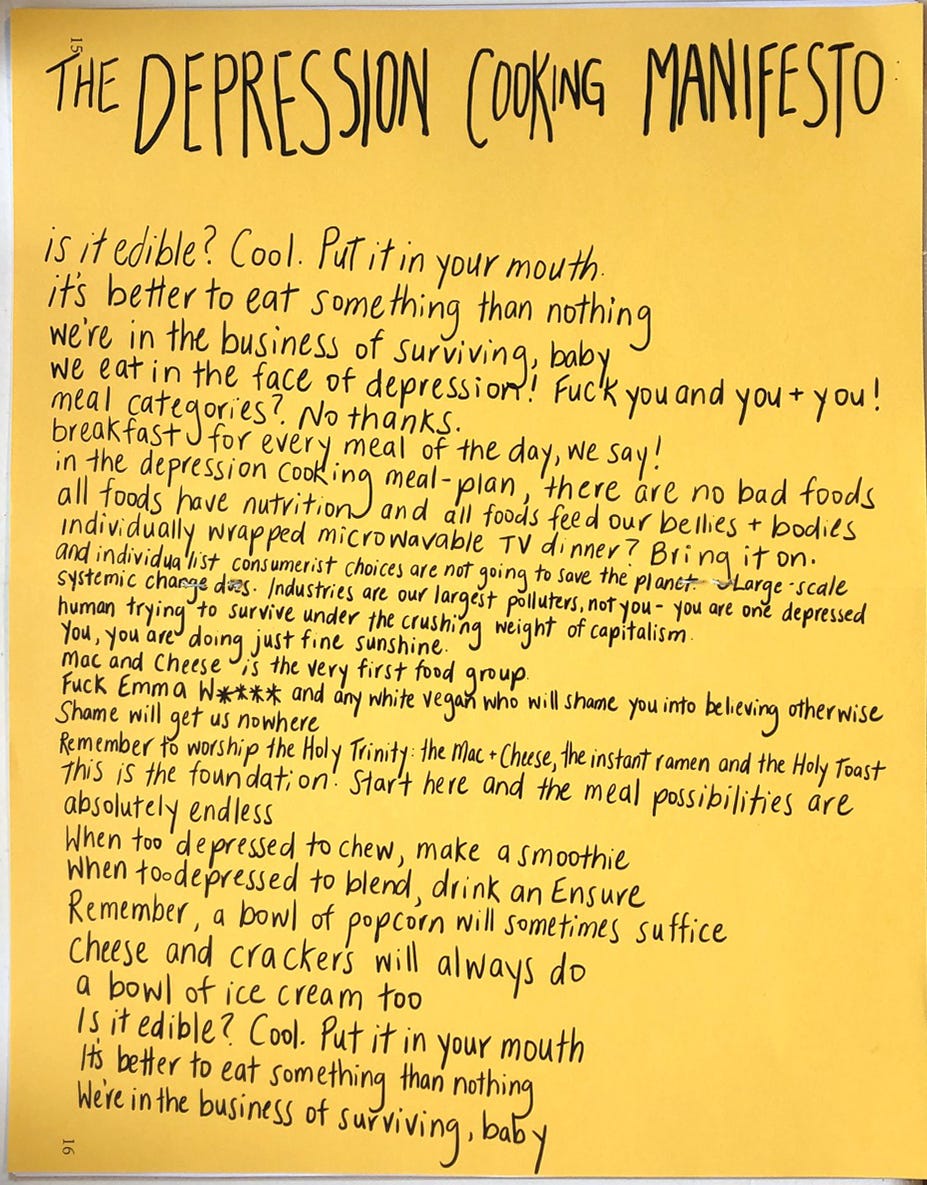 15
THE DEPRESSION COOKING MANIFESTO
is it edible? Cool. Put it in your mouth.
it's better to eat something than nothing
we're in the business of surviving, baby
we eat in the face of depression! Fuck you and you + you!
meal categories? No thanks.
breakfast for every meal of the day, we say!
in the depression cooking meal-plan, there are no bad foods
all foods have nutrition and all foods feed our bellies + bodies
individually wrapped microwavable TV dinner? Bring it on.
and individualist consumerist choices are not going to save the planet. Large-scale
systemic change does. Industries are our largest polluters, not you - you are one depressed
human trying to survive under the crushing weight of capitalism.
You, you are doing just fine sunshine.
Mac and Cheese is the very first food group.
Fuck Emma W**** and any white vegan who will shame you into believing otherwise
Shame will get us nowhere
Remember to worship the Holy Trinity: the Mac + Cheese, the instant ramen and the Holy Toast
This is the foundation. Start here and the meal possibilities are
absolutely endless
When too depressed to chew, make a smoothie
When too depressed to blend, drink an Ensure
Remember, a bowl of popcorn will sometimes suffice
cheese and crackers will always do
a bowl of ice cream too
Is it edible? Cool. Put it in your mouth
It's better to eat something than nothing
We're in the business of surviving, baby
16